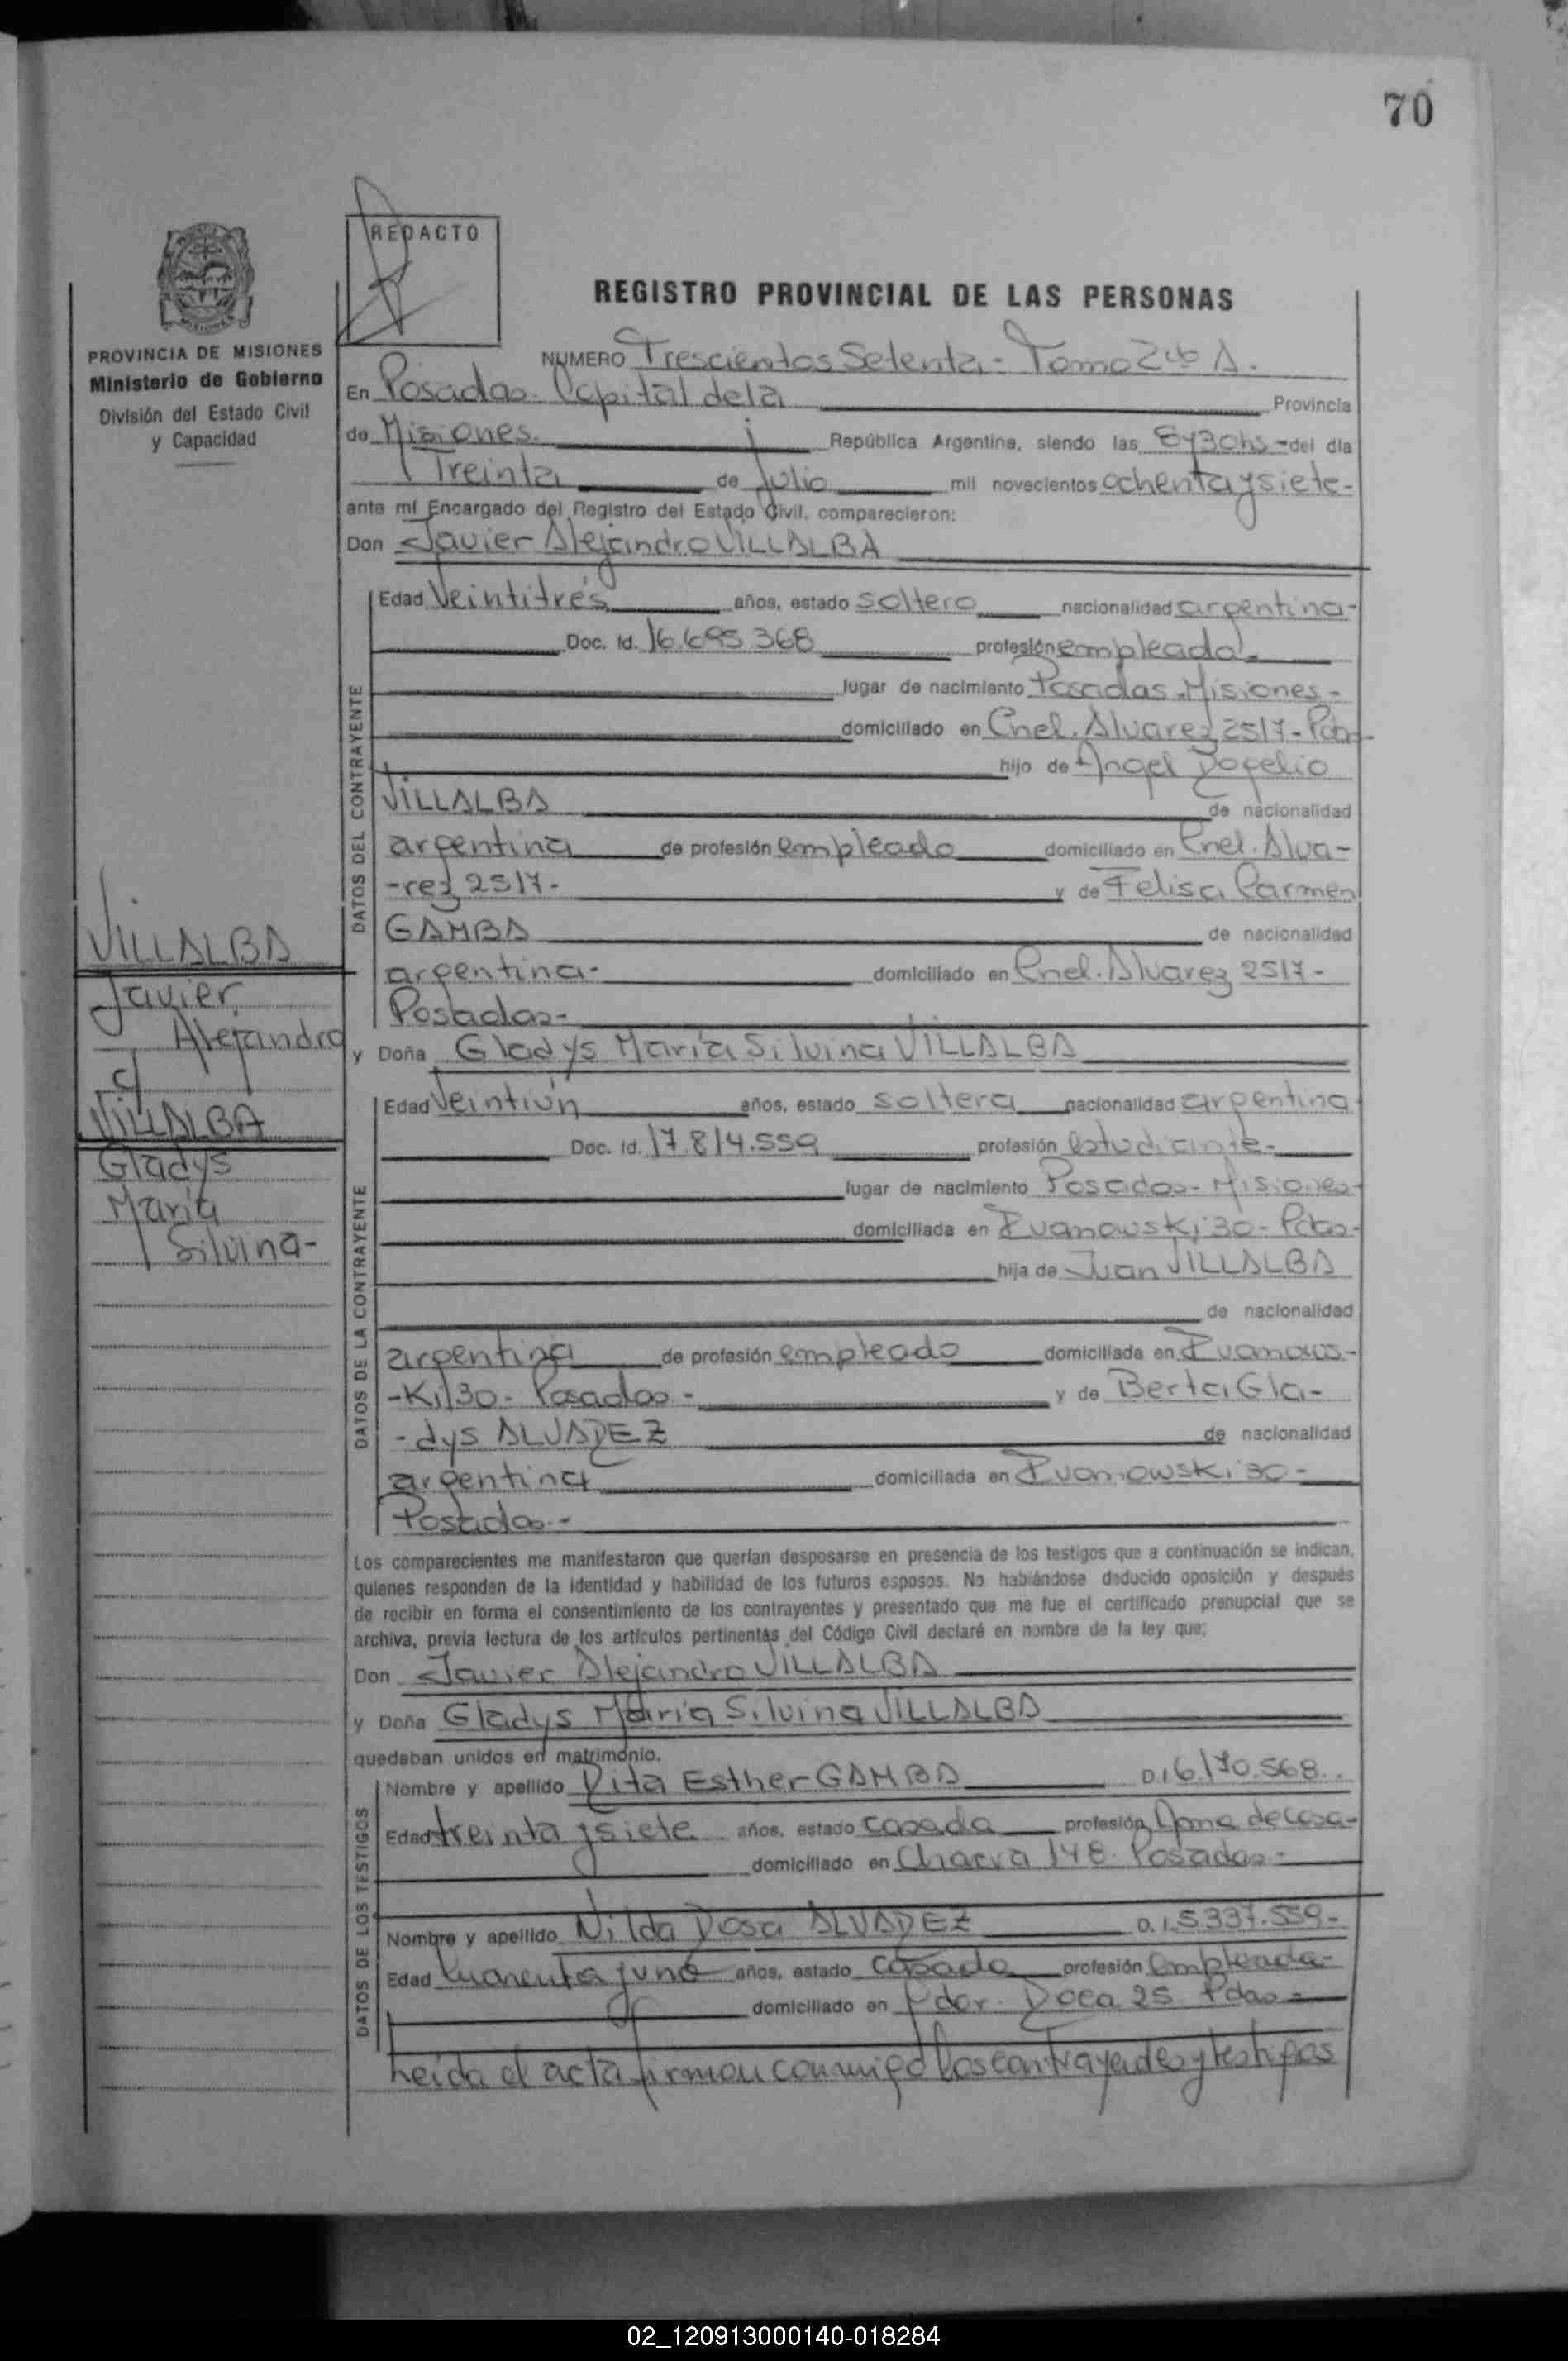 70
REDACTO
REGISTRO PROVINCIAL DE LAS PERSONAS
PROVINCIA DE MISIONES
Ministerio de Gobierno
División del Estado Civil
y Capacidad
NUMERO Trescientos Setenta - Tomo 2do A.
En Posadas. Capital de la Provincia
de Misiones. República Argentina, siendo las 8y30hs - del día
Treinta de Julio mil novecientos ochenta y siete -
ante mí Encargado del Registro del Estado Civil, comparecieron:
Don Javier Alejandro VILLALBA
DATOS DEL CONTRAYENTE
Edad Veintitrés años, estado soltero nacionalidad argentina -
Doc. Id. 16.695.368 profesión empleado.
lugar de nacimiento Posadas - Misiones -
domiciliado en Cnel. Alvarez 2517 - Pdas -
hijo de Angel Rogelio
VILLALBA de nacionalidad
argentina de profesión empleado domiciliado en Cnel. Alva-
-rez 2517 - y de Felisa Carmen
GAMBA de nacionalidad
argentina - domiciliado en Cnel. Alvarez 2517 -
Posadas -
VILLALBA
Javier
Alejandro
c/
VILLALBA
Gladys
María
Silvina -
y Doña Gladys María Silvina VILLALBA
DATOS DE LA CONTRAYENTE
Edad Veintiún años, estado soltera nacionalidad argentina
Doc. Id. 17.814.559 profesión estudiante -
lugar de nacimiento Posadas - Misiones -
domiciliada en Ivanowski 30 - Pdas -
hija de Juan VILLALBA
de nacionalidad
argentina de profesión empleado domiciliada en Ivanows-
-Ki 30 - Posadas - y de Berta Gla-
-dys ALVAREZ de nacionalidad
argentina domiciliada en Ivanowski 30 -
Posadas -
Los comparecientes me manifestaron que querían desposarse en presencia de los testigos que a continuación se indican,
quienes responden de la identidad y habilidad de los futuros esposos. No habiéndose deducido oposición y después
de recibir en forma el consentimiento de los contrayentes y presentado que me fue el certificado prenupcial que se
archiva, previa lectura de los artículos pertinentes del Código Civil declaré en nombre de la ley que;
Don Javier Alejandro VILLALBA
y Doña Gladys María Silvina VILLALBA
quedaban unidos en matrimonio.
DATOS DE LOS TESTIGOS
Nombre y apellido Rita Esther GAMBA D.I. 6.170.568.
Edad treinta y siete años, estado casada profesión Ama de casa -
domiciliado en Chacra 148. Posadas -
Nombre y apellido Nilda Rosa ALVAREZ D.I. 5.337.559 -
Edad Cuarenta y uno años, estado casada profesión Empleada -
domiciliado en Roca 25 Pdas -
Leída el acta firman conmigo los contrayentes y testigos
02_120913000140-018284